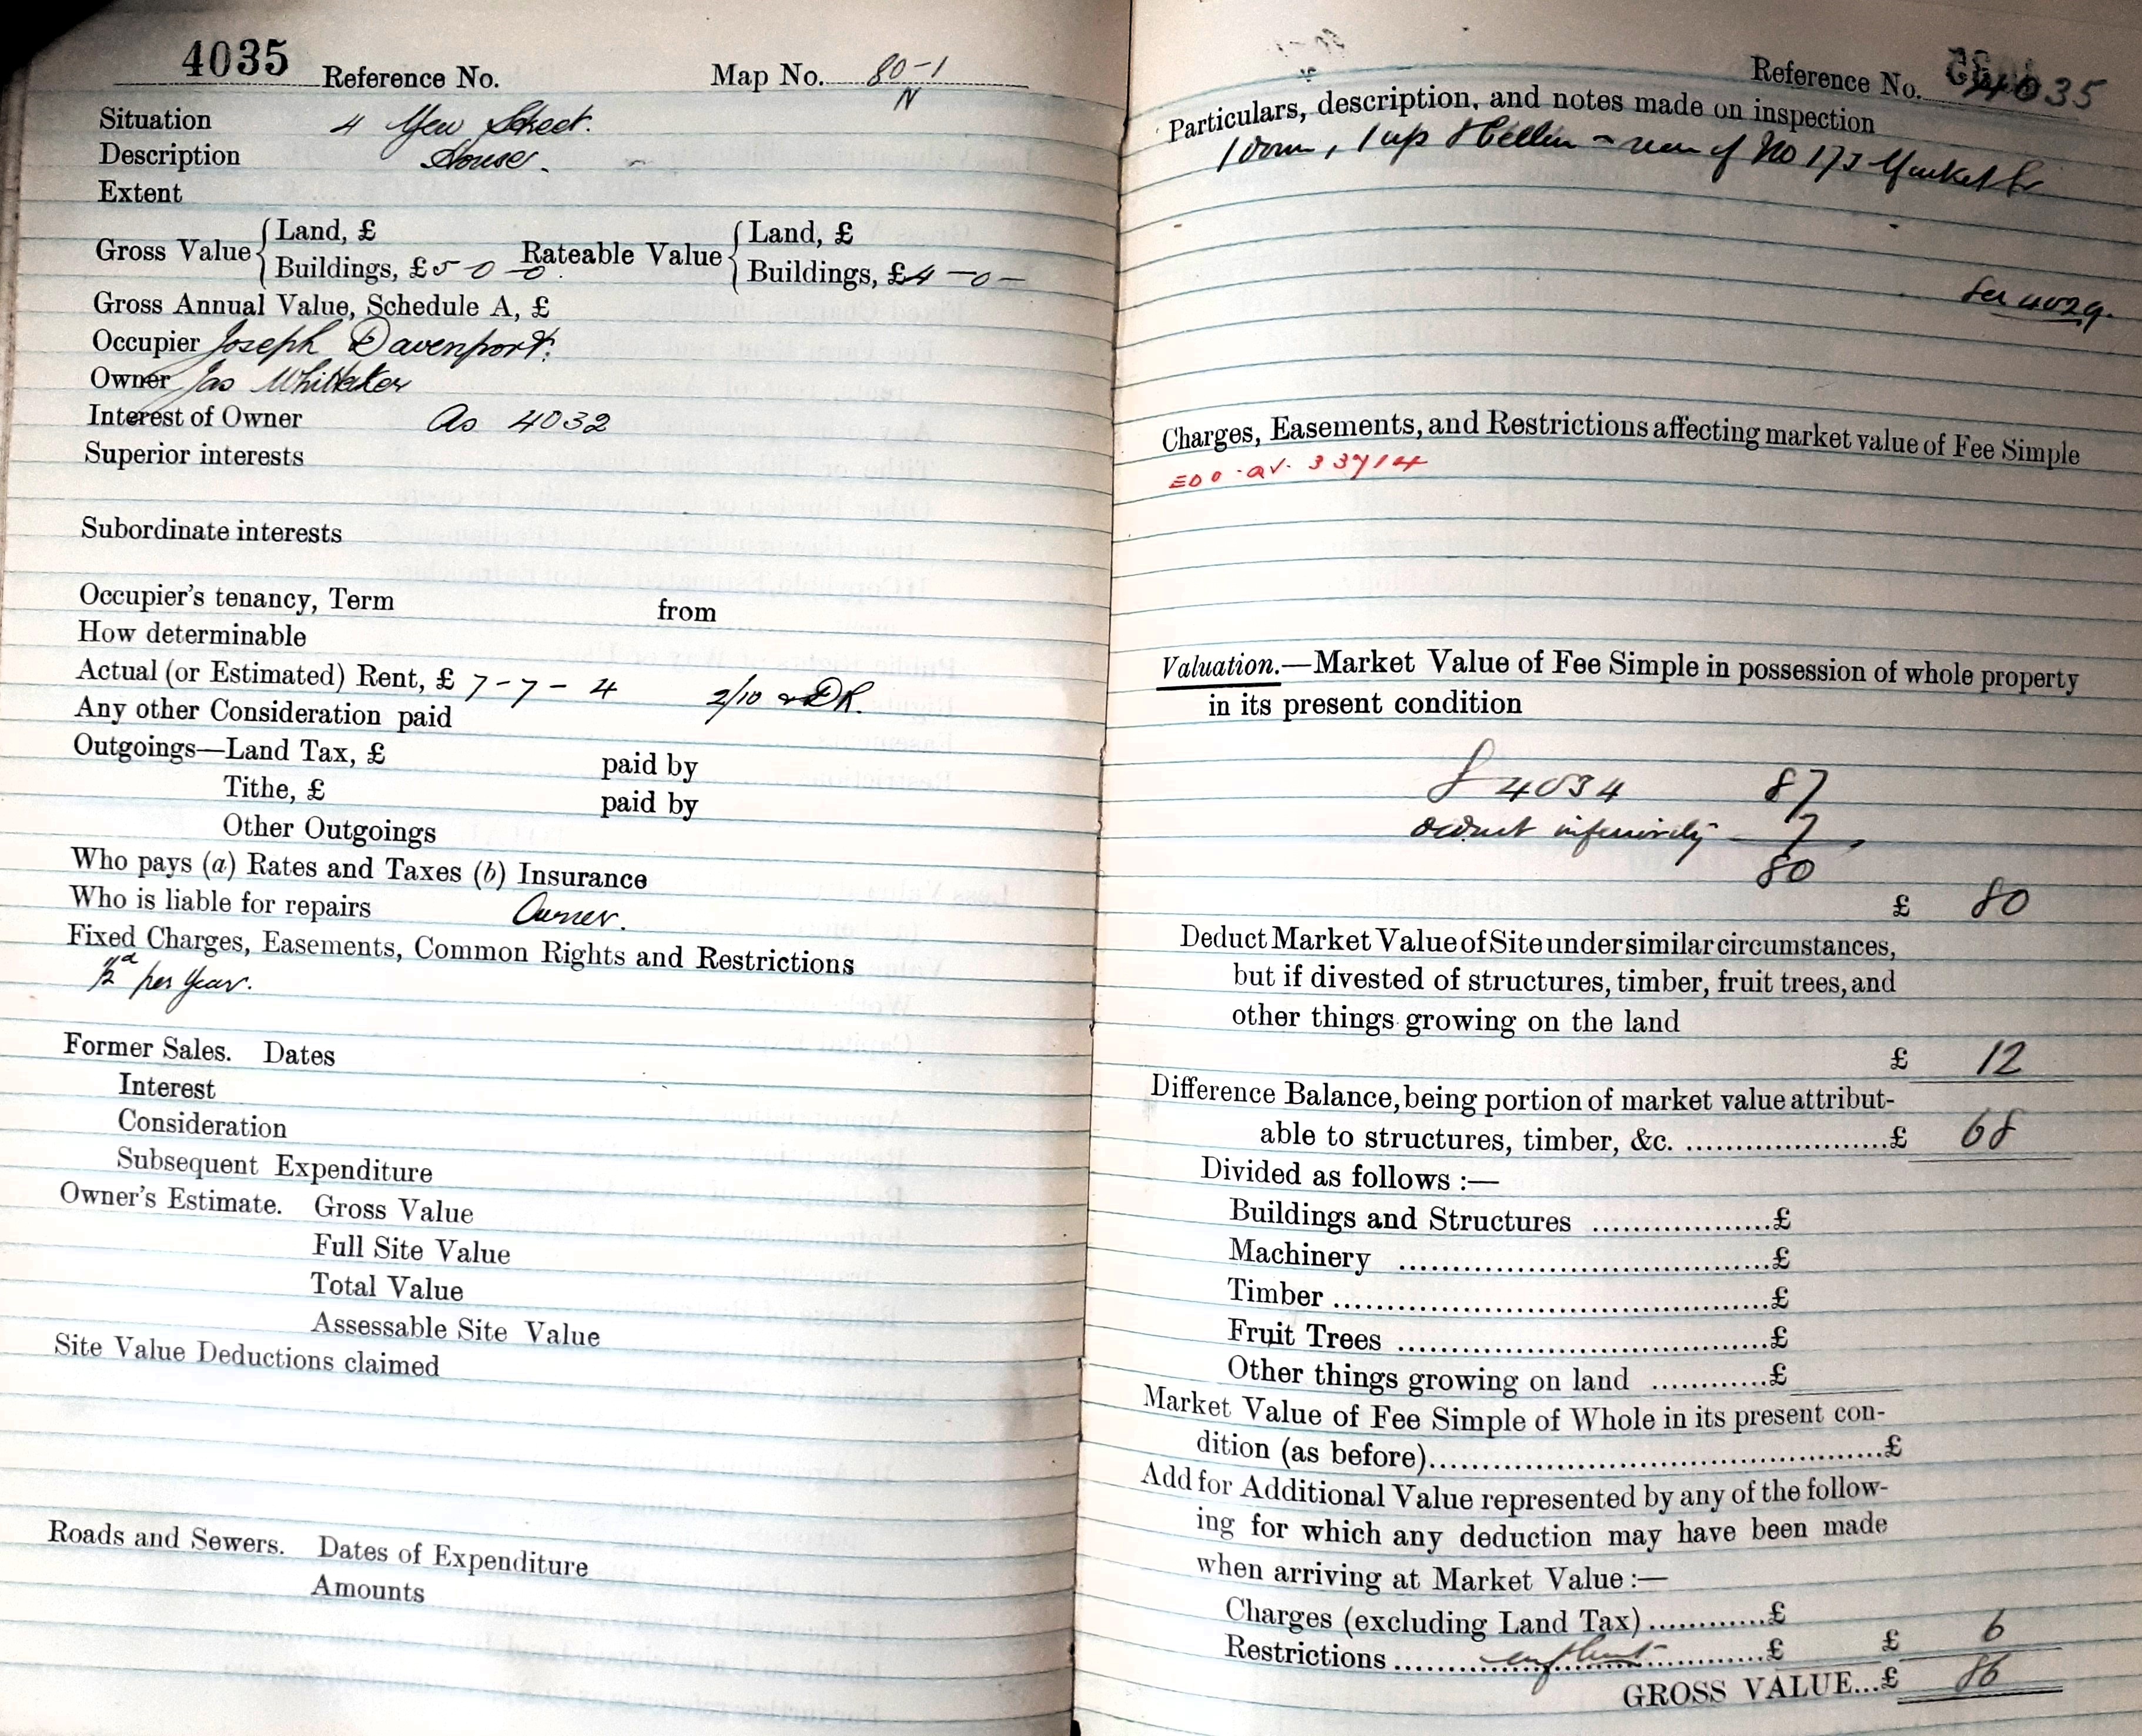 4035 Reference No. Map No. 80-1
N
Situation 4 Yew Street.
Description House.
Extent
Gross Value { Land, £ Rateable Value { Land, £
Buildings, £5-0-0. Buildings, £4-0-
Gross Annual Value, Schedule A, £
Occupier Joseph Davenport.
Owner Jas Whittaker
Interest of Owner As 4032
Superior interests
Subordinate interests
Occupier's tenancy, Term from
How determinable
Actual (or Estimated) Rent, £ 7-7-4 2/10
Any other Consideration paid
Outgoings—Land Tax, £ paid by
Tithe, £ paid by
Other Outgoings
Who pays (a) Rates and Taxes (b) Insurance
Who is liable for repairs Owner.
Fixed Charges, Easements, Common Rights and Restrictions
½d per year.
Former Sales. Dates
Interest
Consideration
Subsequent Expenditure
Owner's Estimate. Gross Value
Full Site Value
Total Value
Assessable Site Value
Site Value Deductions claimed
Roads and Sewers. Dates of Expenditure
Amounts
Reference No. 4035
Particulars, description, and notes made on inspection
1 down, 1 up & Cellar - rear of No 173 Market St
See 4029.
Charges, Easements, and Restrictions affecting market value of Fee Simple
Valuation.—Market Value of Fee Simple in possession of whole property
in its present condition
4034 87
inferiority 7
80
£ 80
Deduct Market Value of Site under similar circumstances,
but if divested of structures, timber, fruit trees, and
other things growing on the land
£ 12
Difference Balance, being portion of market value attribut-
able to structures, timber, &c. ....................£ 68
Divided as follows :—
Buildings and Structures ..................£
Machinery .....................................£
Timber ...........................................£
Fruit Trees .....................................£
Other things growing on land ............£
Market Value of Fee Simple of Whole in its present con-
dition (as before)..............................................£
Add for Additional Value represented by any of the follow-
ing for which any deduction may have been made
when arriving at Market Value :—
Charges (excluding Land Tax)............£
Restrictions.....................................£ £ 6
GROSS VALUE...£ 86